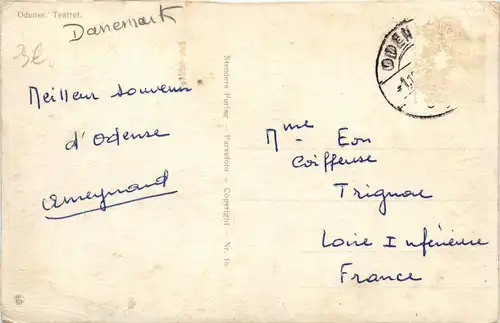 Odense. Teatret.
Danemark
3€
Meilleur souvenir
d'Odense
Stenders Forlag — Farvefoto — Copyright — Nr. 16
ODEN
Mme Eon
Coiffeuse
Trignac
Loire Inférieure
France